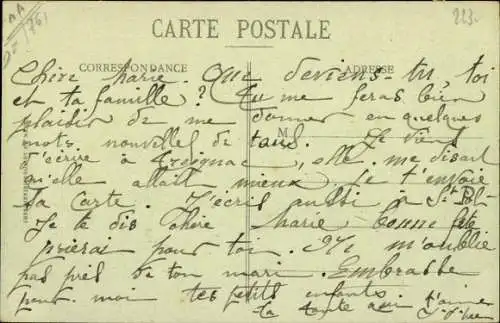 223.
CARTE POSTALE
CORRESPONDANCE
ADRESSE
Chère Marie. Que deviens-tu, toi
et ta famille? Tu me feras bien
plaisir de me donner en quelques
mots nouvelles de tous. Je viens
M
d'écrire à Treignac, elle me disait
qu'elle allait mieux. Je t'envoie
sa carte. J'écris aussi à St Pol-
Je te dis chère Marie bonne fête
prieras pour toi. Ne m'oublie
pas près de ton mari. Embrasse
pour moi tes petits enfants.
ta tante qui t'aime